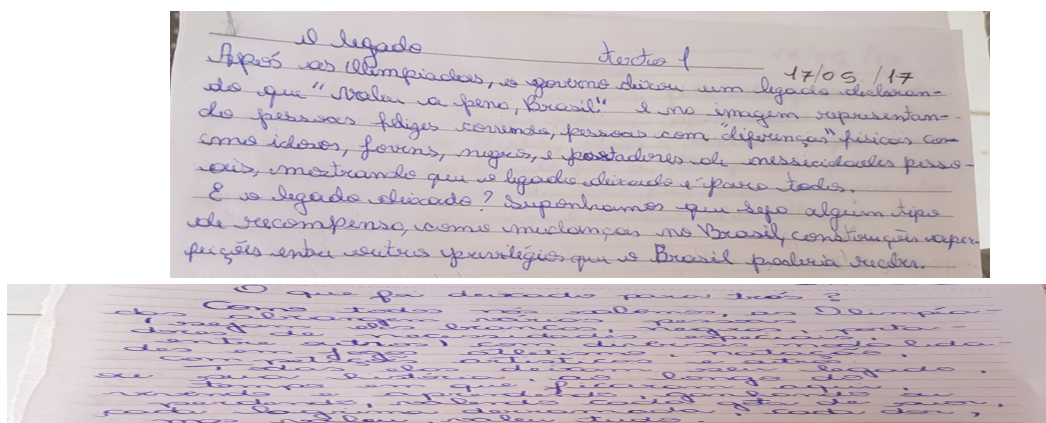 O legado
texto 1
17/05/17
Após as Olimpíadas, o governo deixou um legado declaran-
do que "Valeu a pena, Brasil" e na imagem representan-
do pessoas felizes correndo, pessoas com "diferenças" físicas co-
mo idosos, jovens, negros, e portadores de nessecidades pesso-
ais, mostrando que o legado deixado é para todos.
E o legado deixado? Suponhamos que seja algum tipo
de recompensa, como mudanças no Brasil, construções, aper-
feições entre outros privilégios que o Brasil poderia receber.
O que foi deixado para trás?
Como todos nós sabemos, as Olimpía-
das
sejam eles brancos, negros, porta-
dores de necessidades especiais,
entre outros) com diversas modalida-
des em atletismo, natação,
e outros.
Todas elas deixam seu legado,
ou sua história, ao longo do
tempo em que ficaram aqui,
vivendo, aprendendo, ganhando ou
perdendo, valendo cada gota de suor,
cada lágrima derramada, cada dor,
mas valeu, valeu tudo.